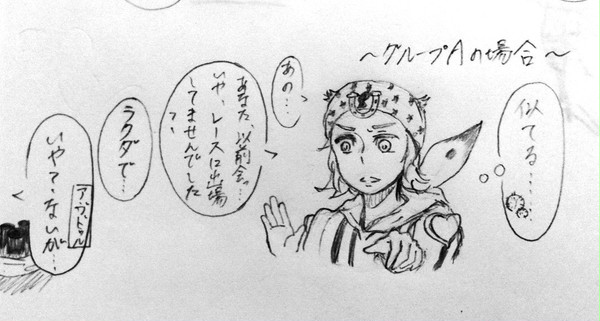 ～グループAの場合～
似てる……
あの…
あなた、以前会っ…
いや、レースに出場
してませんでした
?
ラクダで…
いや?、ないが…
アブドゥル